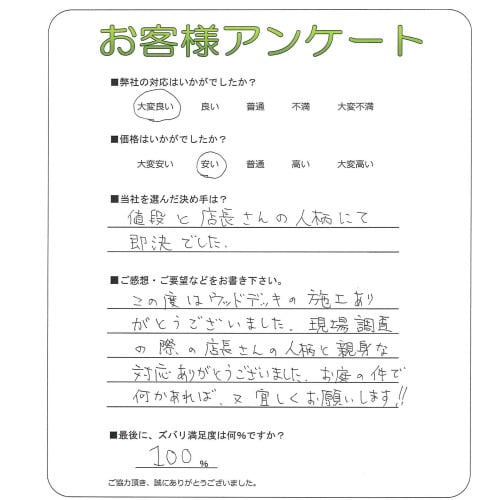 お客様アンケート
■弊社の対応はいかがでしたか？
大変良い 良い 普通 不満 大変不満
■価格はいかがでしたか？
大変安い 安い 普通 高い 大変高い
■当社を選んだ決め手は？
値段と店長さんの人柄にて
即決でした.
■ご感想・ご要望などをお書き下さい。
この度はウッドデッキの施工あり
がとうございました. 現場調査
の際の店長さんの人柄と親身な
対応ありがとうございました. お庭の件で
何かあれば、又宜しくお願いします!!
■最後に、ズバリ満足度は何%ですか？
100 %
ご協力頂き、誠にありがとうございました。